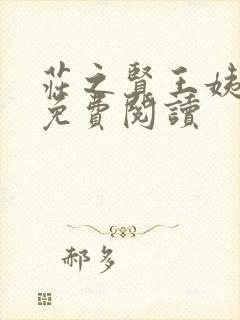 莊之賢王姨
免費閱讀
郝多